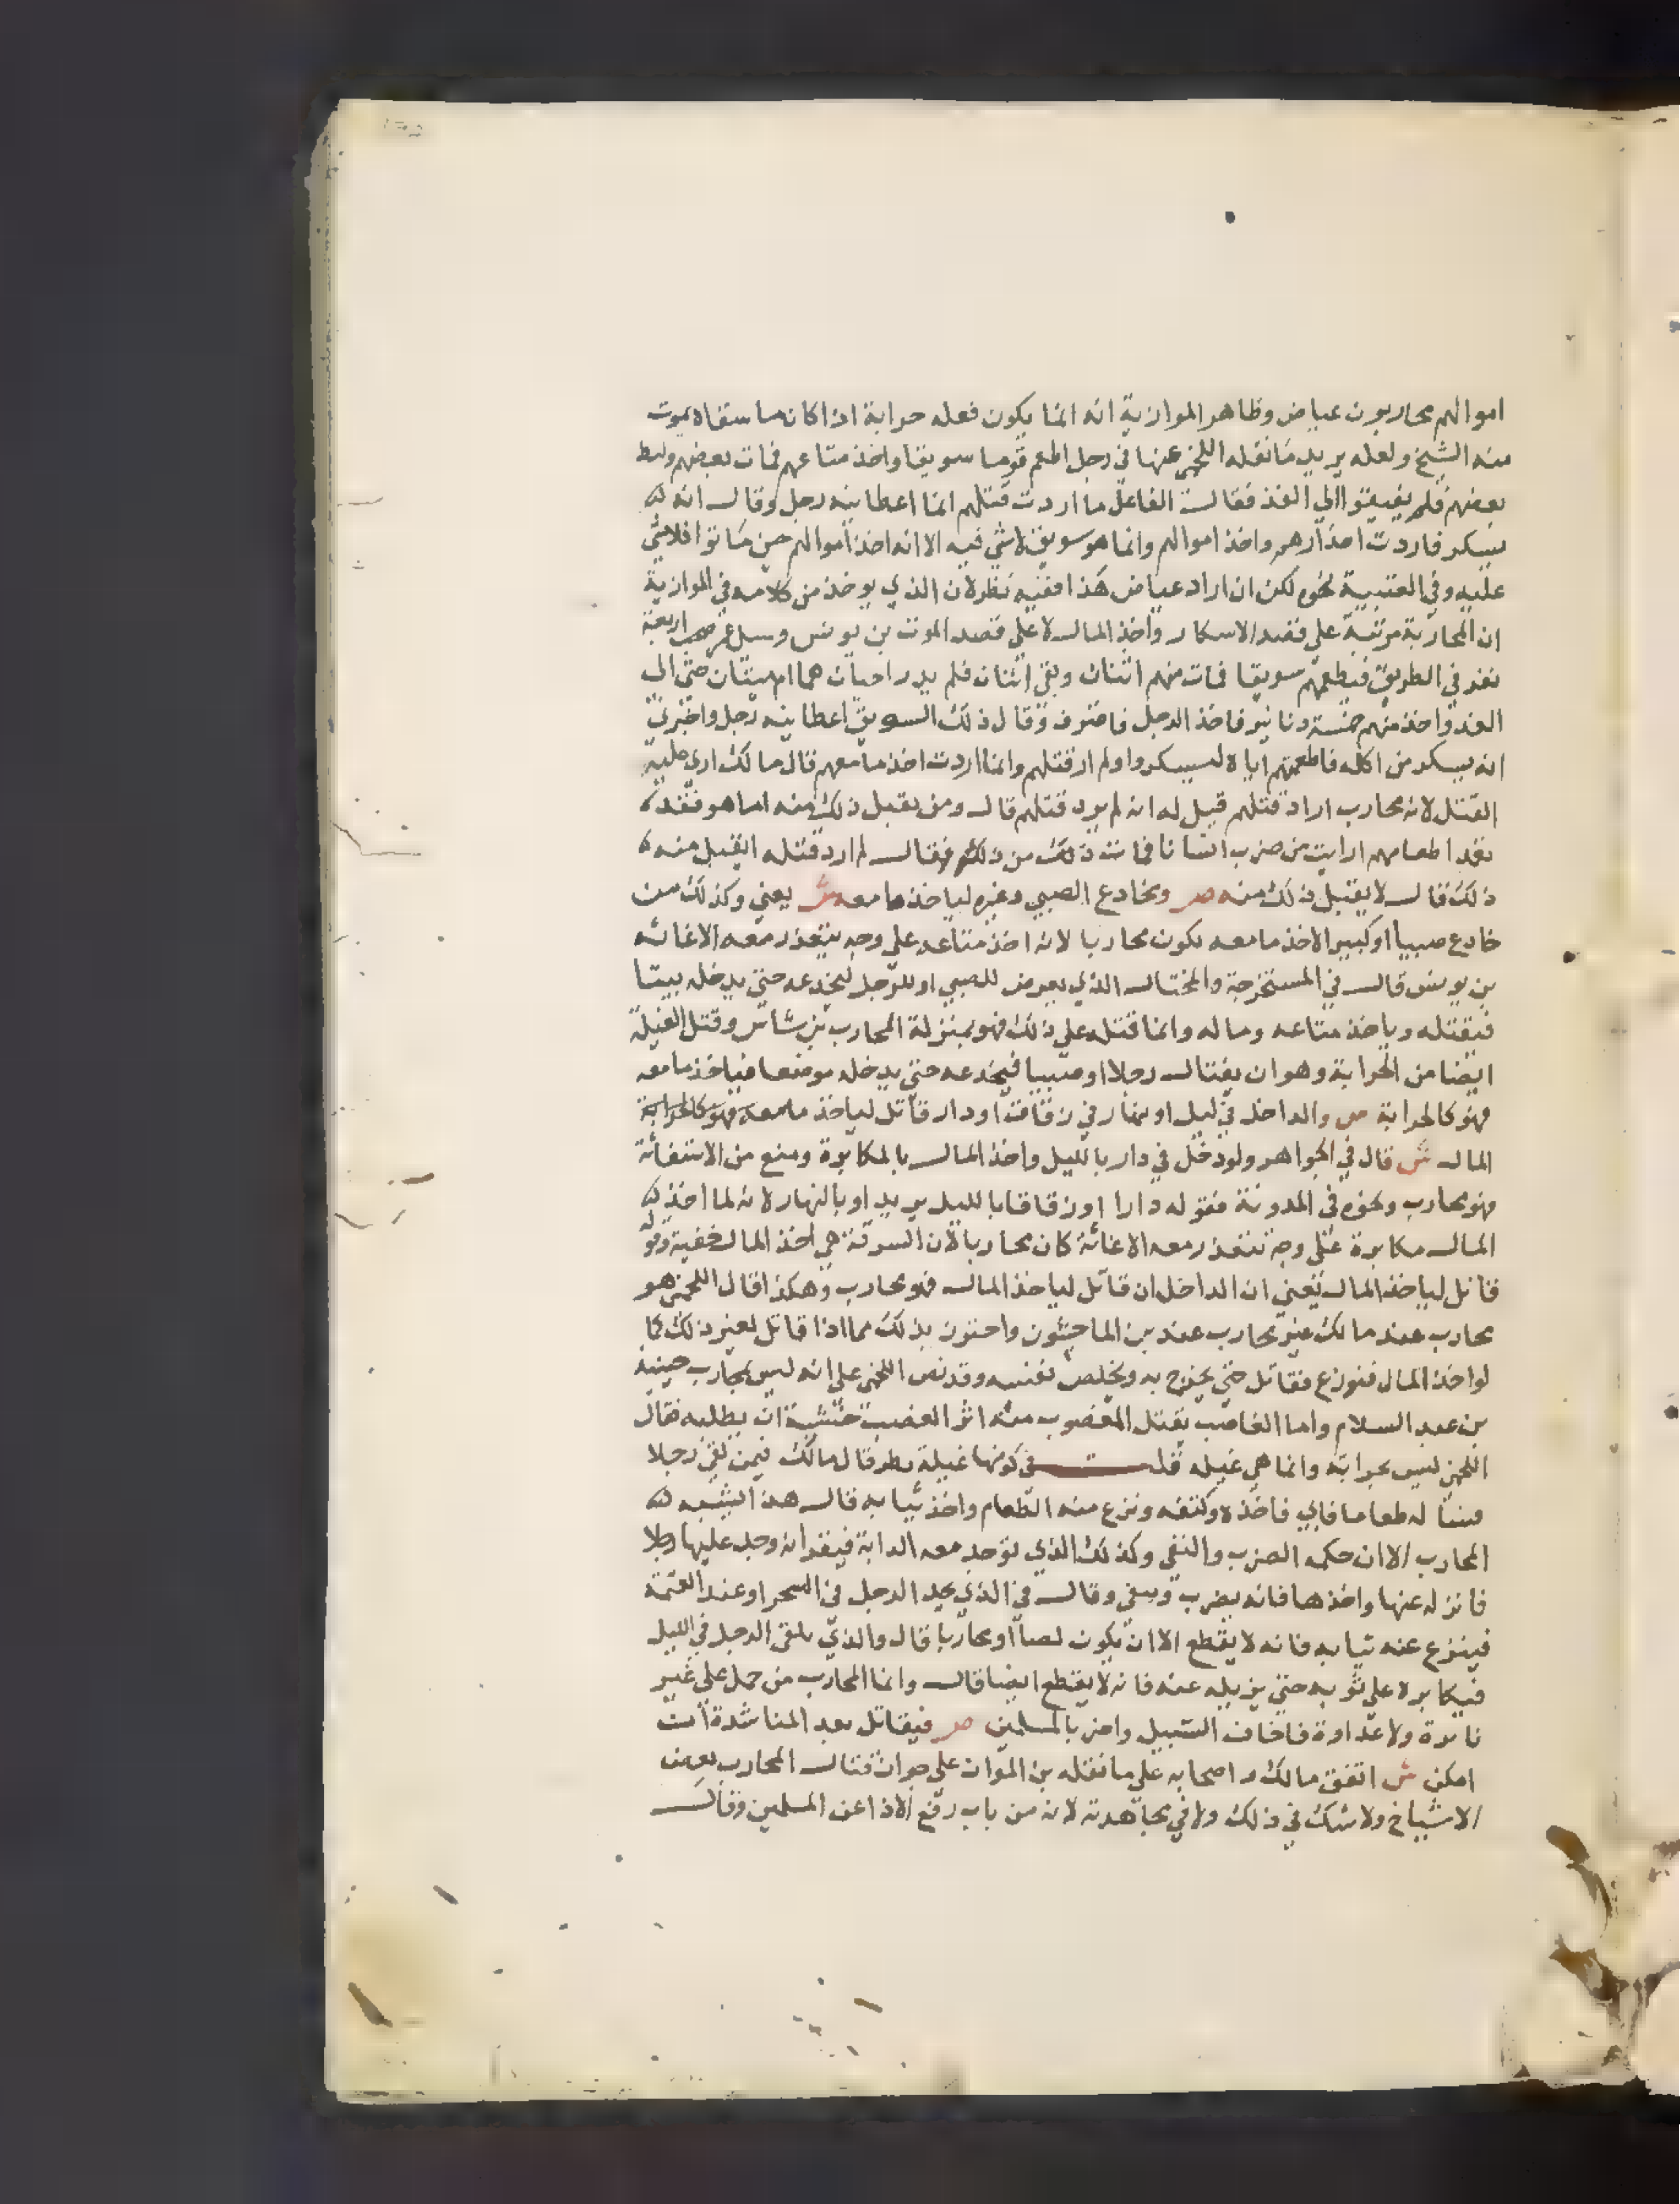 اموالهم محاربون عياض وظاهر الموازية انه انما يكون فعله حرابة اذا كان ما سقاه يموت
منه الشيخ ولعله يريد ما نقله اللخمي عنها في رجل اطعم قوما سويقا واخذ متاعهم فمات بعضهم ولبط
بعضهم فلم يفيقوا الي الغد فقال الفاعل ما اردت قتلهم انما اعطانيه رجل وقال انه
يسكر فاردت اخذارهم واخذ اموالهم وانما هو سويق لا شي فيه الا انه اخذ اموالهم حين ماتوا فلا شي
عليه وفي العتبية نحوه لكن ان اراد عياض هذا ففيه نظر لان الذي يوخذ من كلامه في الموازية
ان المحاربة مرتبة علي قصد الاسكار واخذ المال لا علي قصد الموت بن يونس وسيل عمن صحب اربعة
نفر في الطريق فيطعمهم سويقا فمات منهم اثنان وبقي اثنان فلم يدر احيان هما ام ميتان حتي الي
الغد واخذ منهم خمسة دنانير فاخذ الرجل فاعترف وقال ذلك السويق اعطانيه رجل واخبرني
انه يسكر من اكله فاطعمتهم اياه ليسكروا ولم ارد قتلهم وانما اردت اخذ ما معهم قال مالك اري عليه
القتل لانه محارب اراد قتلهم قيل له انه لم يرد قتلهم قال ومن يقبل ذلك منه اما هو فقد
نقد اطعامهم ارايت من ضرب انسانا فمات ذلك من ذلك فقال لم ارد قتله ايقبل منه
ذلك قال لا يقبل ذلك منه ص ومخادع الصبي وغيره لياخذ ما معه ش يعني وكذلك من
خادع صبيا او كبير الاخذ ما معه يكون محاربا لانه اخذ متاعه علي وجه يتعذر معه الاغاثه
بن يونس قال في المستخرجة والمختال الذي يعرض للصبي او للرجل ليخدعه حتي يدخله بيتا
فيقتله وياخذ متاعه وماله وانما قتله علي ذلك فهو بمنزلة المحارب بن شاس وقتل الغيلة
ايضا من الحرابة وهو ان يغتال رجلا او صبيا فيخدعه حتي يدخله موضعا فياخذ ما معه
فهو كالحرابة ص والداخل في ليل او نهار في زقاق او دار قاتل لياخذ ما معه فهو كالحرابة
المال ش قال في الجواهر ولو دخل في دار بالليل واخذ المال بالمكابرة ومنع من الاستغاثة
فهو محارب ونحوه في المدونة فقوله دارا او زقاقا بالليل يريد او بالنهار لانه لما اخذ
المال مكابرة علي وجه تتعذر معه الاغاثة كان محاربا لان السرقة هي اخذ المال خفية وقوله
قاتل لياخذ المال يعني ان الداخل ان قاتل لياخذ المال فهو محارب وهكذا قال اللخمي هو
محارب عند مالك غير محارب عند بن الماجشون واحترز بذلك مما اذا قاتل لغير ذلك كما
لو اخذ المال فنوزع فقاتل حتي يخرج به ويخلص نفسه وقد نص اللخمي علي انه ليس بمحارب حينيذ
بن عبد السلام واما الغاصب يقتل المغصوب منه اثر الغصب خشية ان يطلبه فقال
اللخمي ليس بحرابة وانما هي غيله قلت في كونها غيلة نظر قال مالك فيمن لقي رجلا
له طعاما فابي فاخذه وكتفه ونزع منه الطعام واخذ ثيابه قال هذا الشبه
المحارب الا ان حكمه الضرب والنفي وكذلك الذي توجد معه الدابة فيقر انه وجد عليها رجلا
فانزله عنها واخذها فانه يضرب وينفي وقال في الذي يجد الرجل في السحر او عند العتمة
فينزع عنه ثيابه فانه لا يقطع الا ان يكون لصا او محاربا قال والذي يلقي الرجل في الليل
فيكابره علي ثوبه حتي يزيله عنه فانه لا يقطع ايضا قال وانما المحارب من حمل علي غير
نايرة ولا عداوة فاخاف السبيل واضر بالمسلمين ص فيقاتل بعد المناشدة ان
امكن ش اتفق مالك واصحابه علي ما نقله بن المواز علي جواز قتال المحارب بعض
الاشياخ ولا شك في ذلك ولا في مجاهدته لانه من باب رفع الاذا عن المسلمين وقال